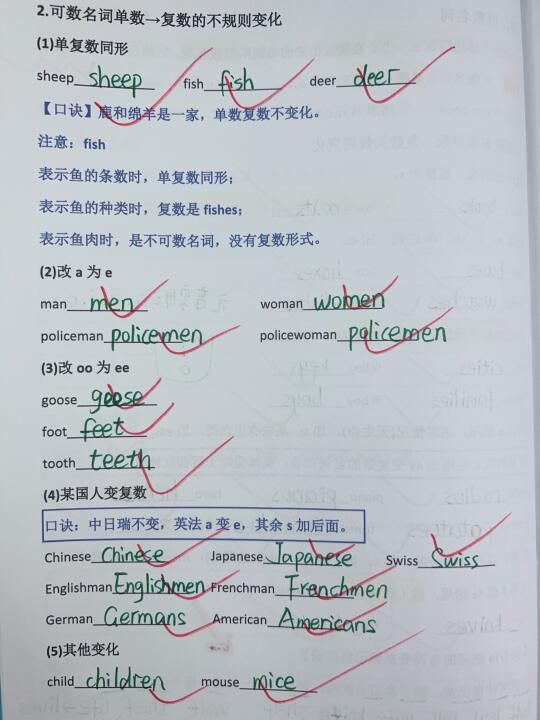 2.可数名词单数→复数的不规则变化
(1)单复数同形
sheep sheep fish fish deer deer
【口诀】鹿和绵羊是一家，单数复数不变化。
注意：fish
表示鱼的条数时，单复数同形；
表示鱼的种类时，复数是 fishes；
表示鱼肉时，是不可数名词，没有复数形式。
(2)改 a 为 e
man men woman women
policeman policemen policewoman policemen
(3)改 oo 为 ee
goose goose
foot feet
tooth teeth
(4)某国人变复数
口诀：中日瑞不变，英法 a 变 e，其余 s 加后面。
Chinese Chinese Japanese Japanese Swiss Swiss
Englishman Englishmen Frenchman Frenchmen
German Germans American Americans
(5)其他变化
child children mouse mice